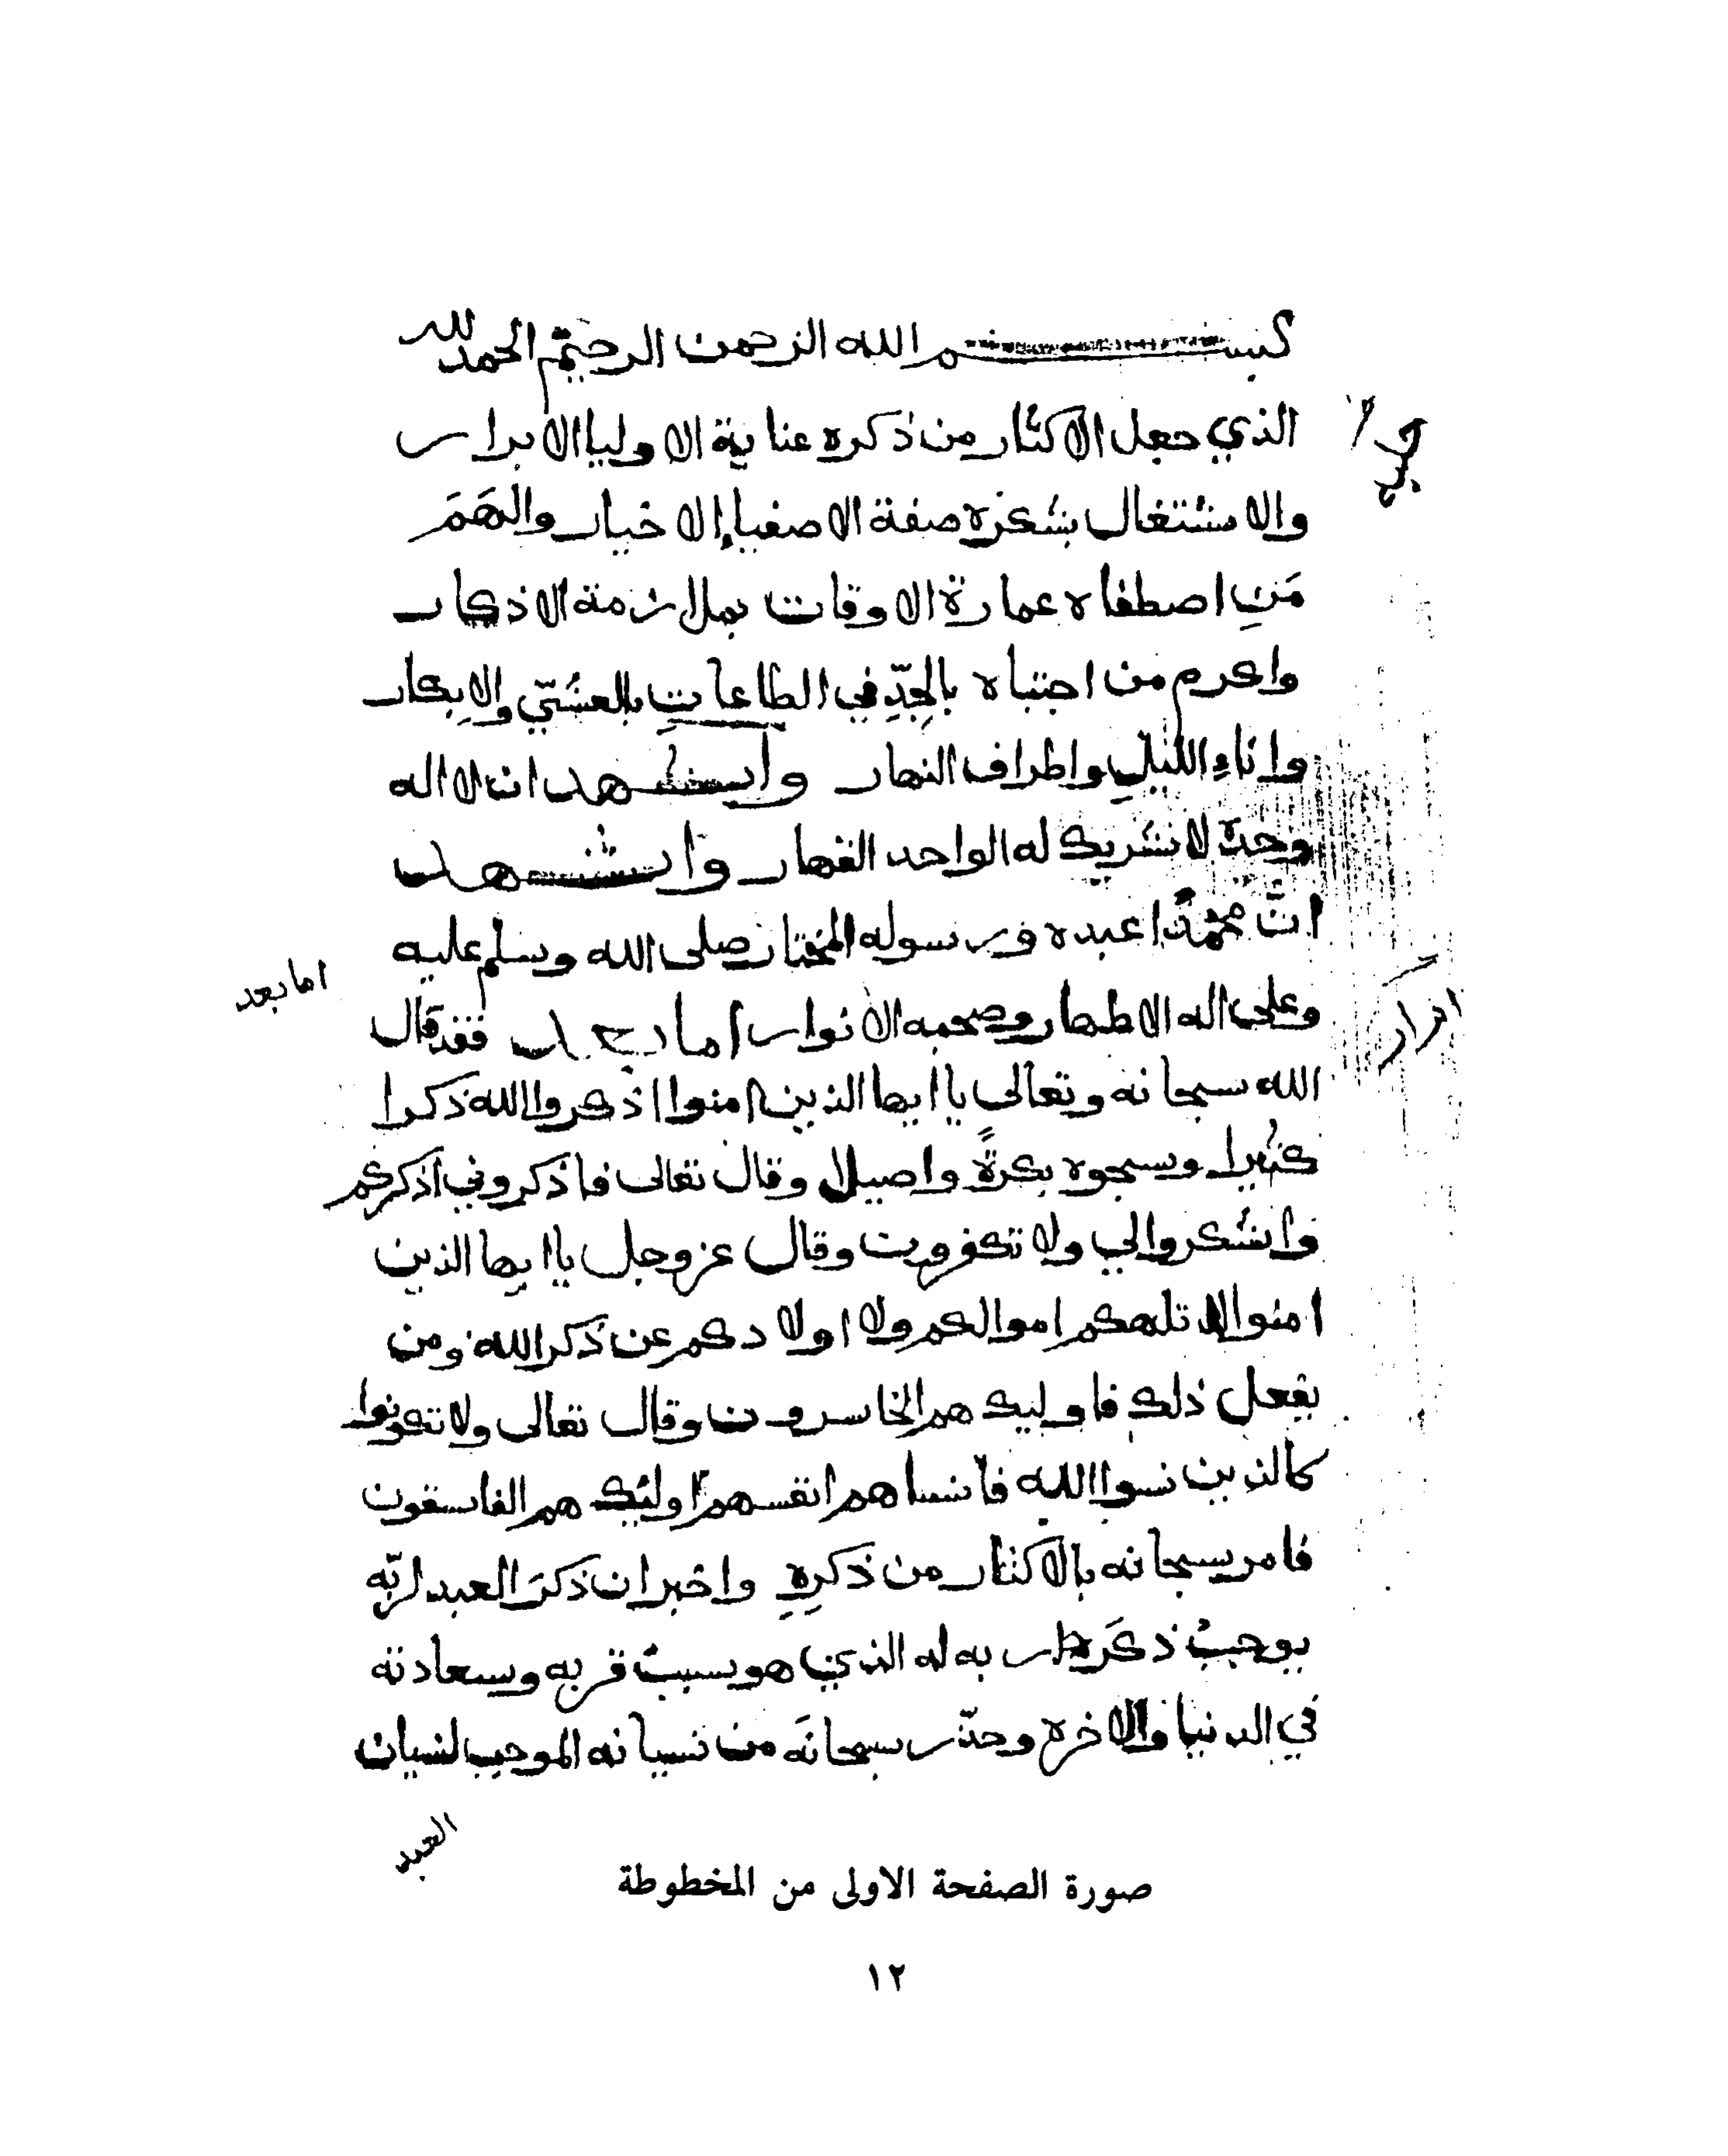 بسم الله الرحمن الرحيم الحمد لله
الذي جعل الاكثار من ذكره عناية الاوليا الابرار
والاشتغال بشكره صفة الاصفياء الاخيار والهَمَ
مَنِ اصطفاه عمارة الاوقات بملازمة الاذكار
واكرم من اجتباه بالجِدِّ في الطاعاتِ بالعشيّ والاِبكار
واناءِ الليلِ واطراف النهار واشهد ان لا اله
وحده لا شريك له الواحد القهار واشهد
انَّ محمدًا عبده ورسوله المختار صلى الله وسلم عليه
اما بعد
وعلى اله الاطهار وصحبه الانوار اما بعد فقد قال
الله سبحانه وتعالى يا ايها الذين امنوا اذكروا الله ذكرا
كثيرا وسبحوه بكرةً واصيلا وقال تعالى فاذكروني اذكركم
واشكروا لي ولا تكفرون وقال عز وجل يا ايها الذين
امنوا لا تلهكم اموالكم ولا اولادكم عن ذكر الله ومن
يفعل ذلك فاوليك هم الخاسرون وقال تعالى ولا تكونوا
كالذين نسوا الله فانساهم انفسهم اولئك هم الفاسقون
فامر سبحانه بالاكثار من ذكرِهِ واخبر ان ذكرَ العبد لربّه
يوجب ذكر ربه له الذي هو سبب قربه وسعادته
في الدنيا والاخره وحذّر سبحانَه من نسيانه الموجب لنسيان
العبد
صورة الصفحة الاولى من المخطوطة
١٢